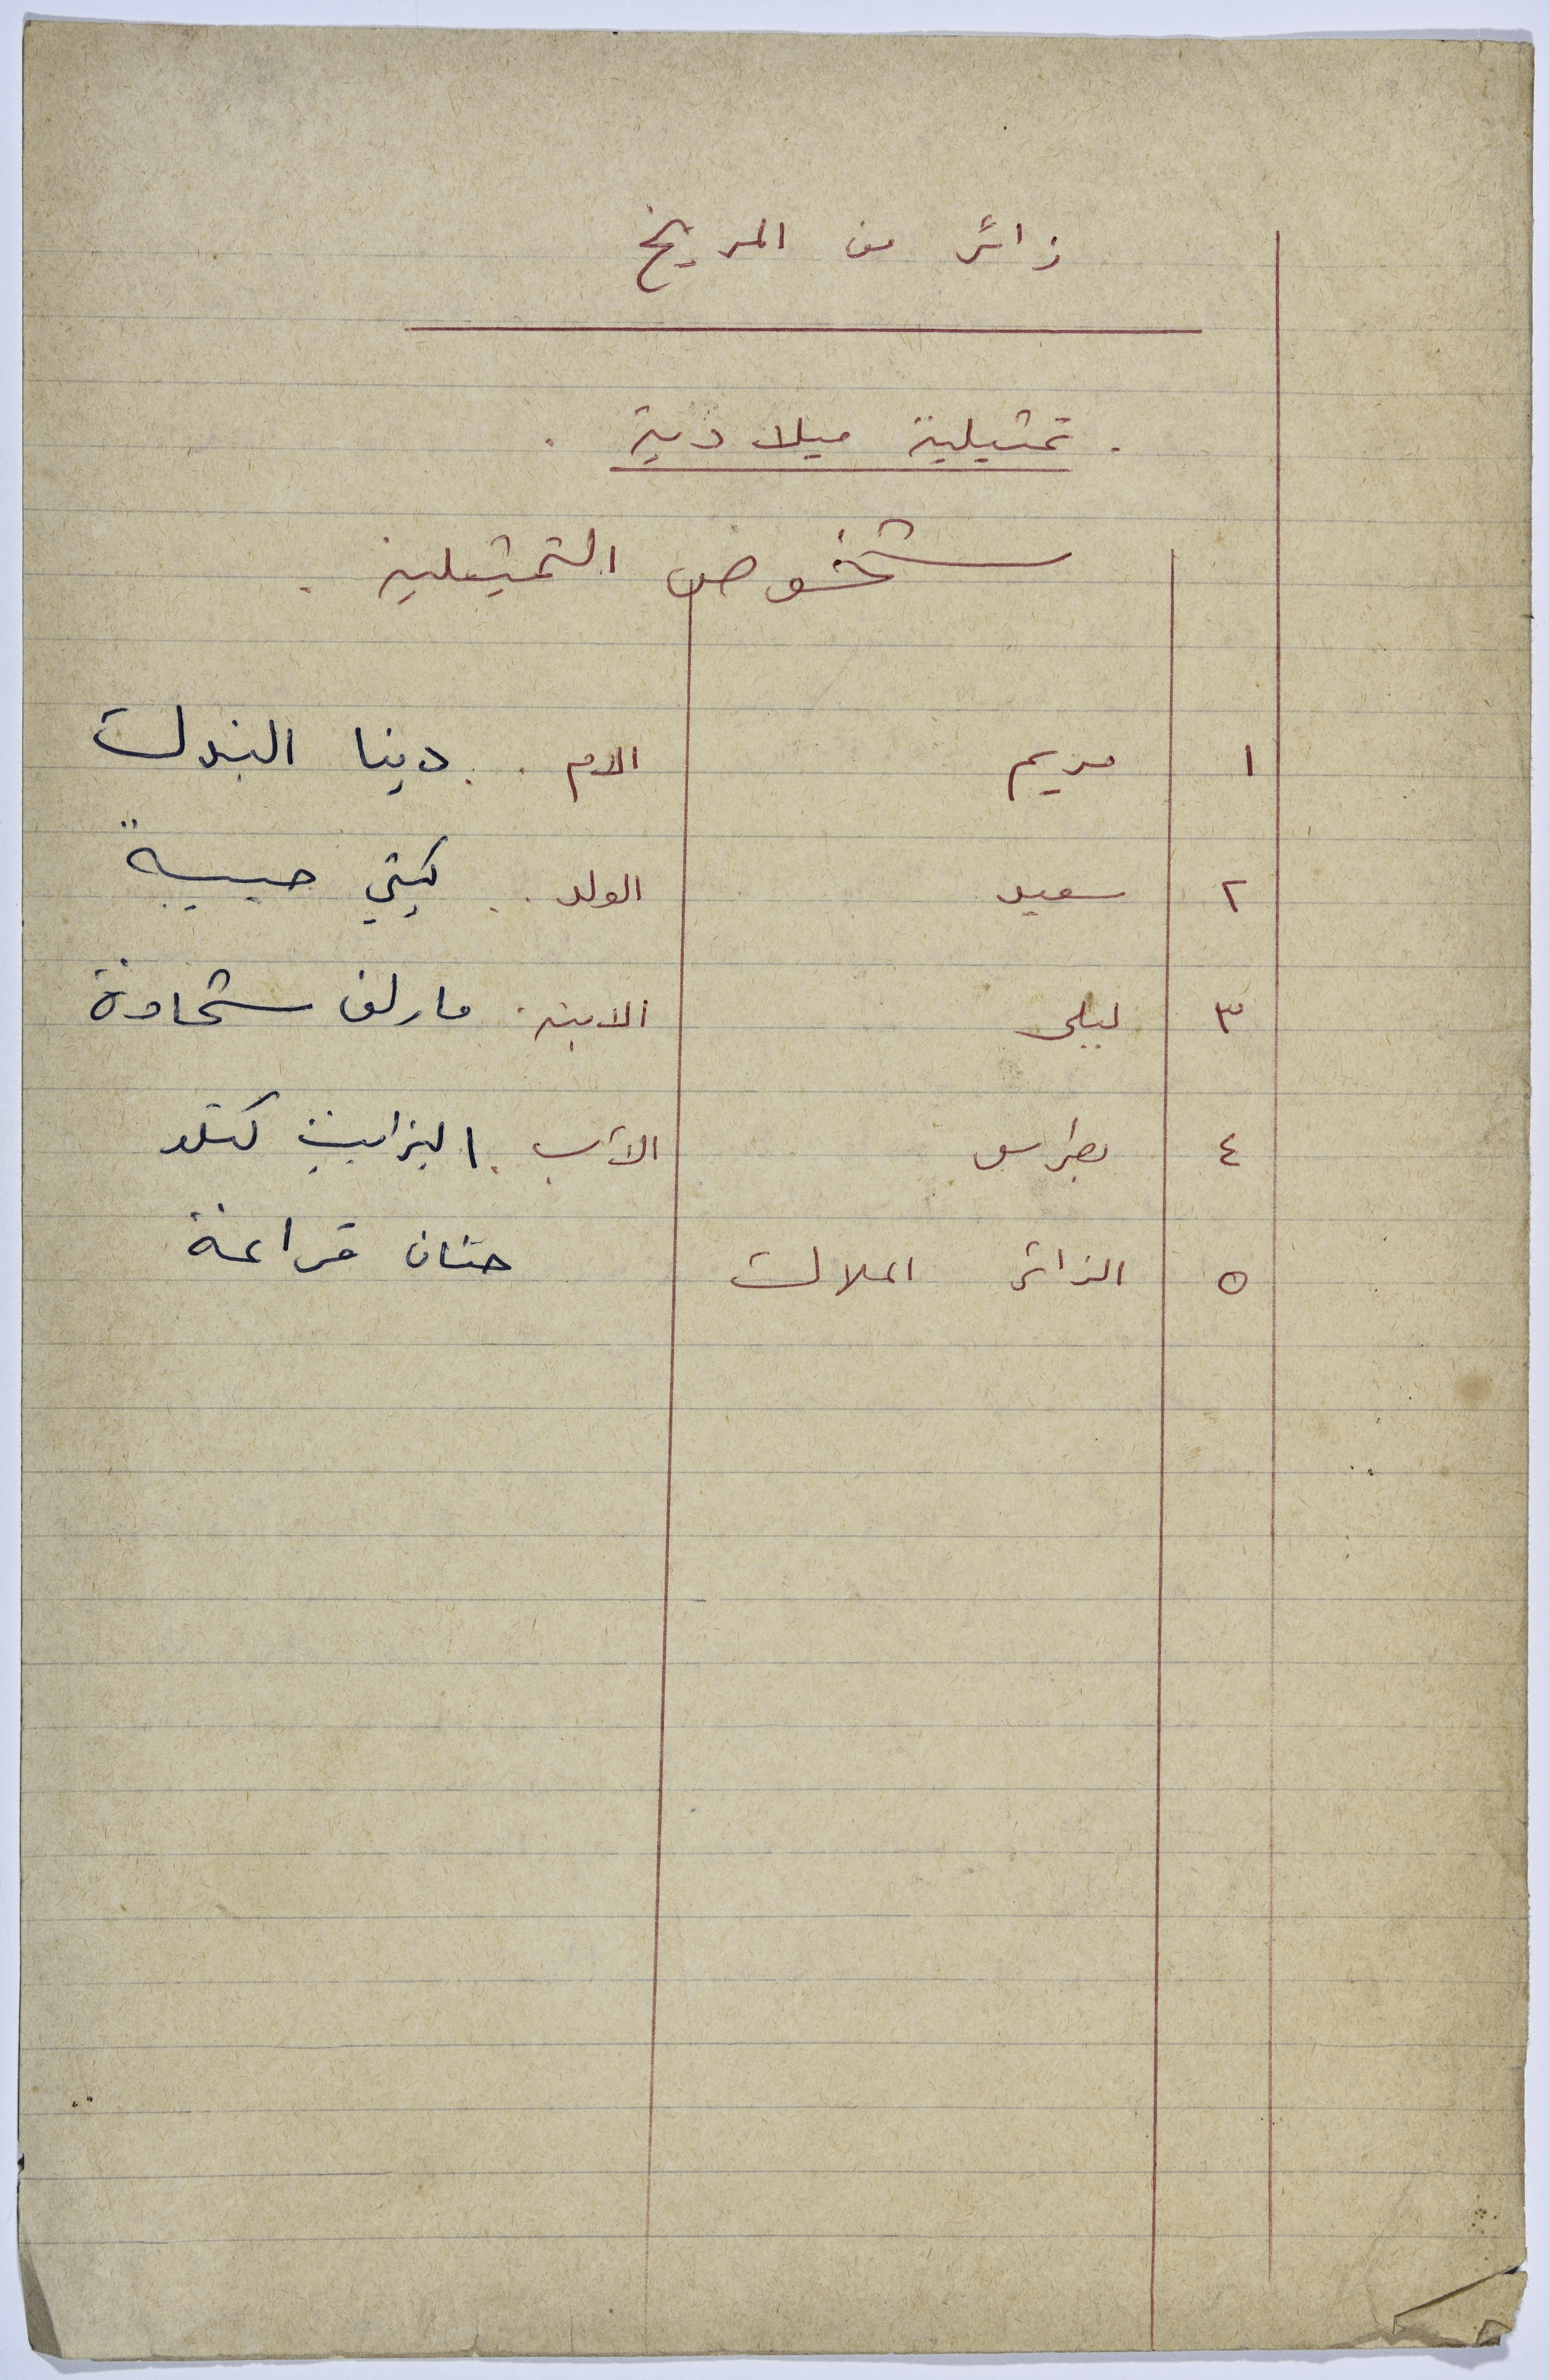 زائر من المريخ
. تمثيلية ميلادية .
شخوص التمثيلية .
١ مريم الام . . دينا البندك
٢ سعيد الولد . . كيتي حبيبة
٣ ليلى الابنة . مارلين شحادة
٤ بطرس الأب . اليزابيث كتلو
٥ الزائر الملاك حنان قراعة